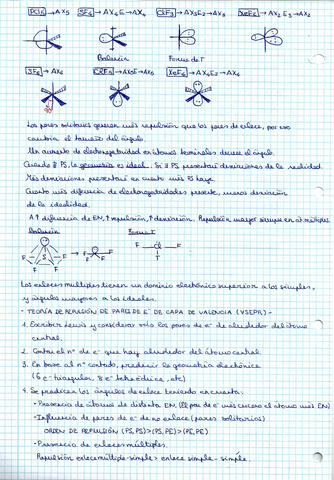 PCl5 → AX5 SF4 → AX4E → AX4 ClF3 → AX3E2 → AX3 XeF2 → AX2E3 → AX2
Balancín Forma de T
SF6 → AX6 ClF5 → AX5E → AX5 XeF4 → AX4E2 → AX4
Los pares solitarios generan más repulsión que los pares de enlace, por eso
cambia el tamaño del ángulo.
Un aumento de electronegatividad en átomos terminales decrece el ángulo.
Cuando ∄ PS, la geometría es ideal. Si ∃ PS presentará desviaciones de la realidad.
Más desviaciones presentará en cuanto más PS haya.
Cuanto más diferencia de electronegatividades presente, menos desviación
de la idealidad.
A ↑ diferencia de EN, ↑ repulsión, ↑ desviación. Repulsión mayor siempre en at. múltiples
Balancín Forma T
F S F F F
F S F F F
F Cl F
F
Los enlaces multiples tienen un dominio electrónico superior a los simples,
y ángulos mayores a los ideales.
- TEORÍA DE REPULSIÓN DE PARES DE E⁻ DE CAPA DE VALENCIA (VSEPR) -
1. Escribir Lewis y considerar solo los pares de e⁻ de alrededor del átomo
central.
2. Contar el nº de e⁻ que hay alrededor del átomo central.
3. En base al nº contado, predecir la geometría electrónica
(6 e⁻ triangular, 8 e⁻ tetraédrica, etc)
4. Se predicen los ángulos de enlace teniendo en cuenta:
- Presencia de átomos de distinta EN, (El par de e⁻ más cercano al átomo más EN)
- Influencia de pares de e⁻ de no enlace (pares solitarios)
ORDEN DE REPULSIÓN (PS,PS) > (PS,PE) > (PE,PE)
- Presencia de enlaces múltiples.
Repulsión enlace múltiple-simple > enlace simple - simple.